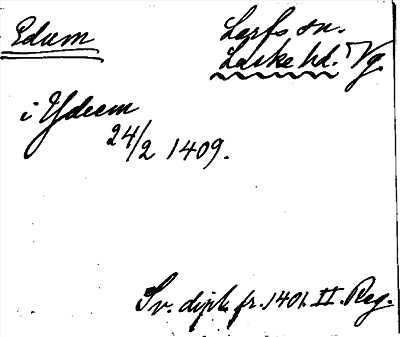 Edum
Lerfs sn.
Laske hd. Vg.
i Ydeem
24/2 1409.
Sv. dipl. fr. 1401. II. Reg.